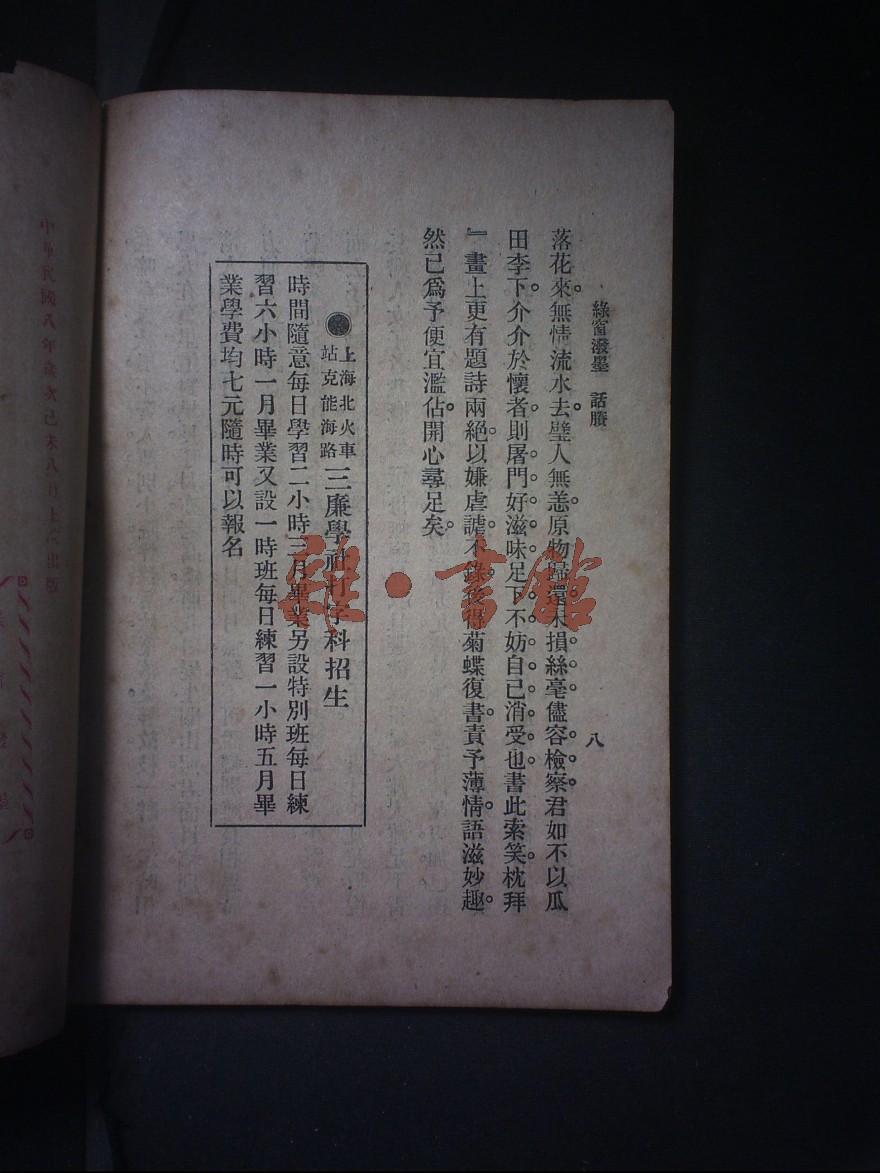 綠窗潑墨 話賸
八
落花來無情流水去璧人無恙原物歸還未損絲毫儘容檢察君如不以瓜
田李下介介於懷者則屠門好滋味足下不妨自己消受也書此索笑枕拜
』畫上更有題詩兩絕以嫌虐謔不錄後得菊蝶復書責予薄情語滋妙趣
然已爲予便宜濫佔開心尋足矣
上海北火車
站克能海路
三廉學社打字科招生
時間隨意每日學習二小時三月畢業另設特別班每日練
習六小時一月畢業又設一時班每日練習一小時五月畢
業學費均七元隨時可以報名
雜·書館
中華民國八年歲次己未八月上
出版